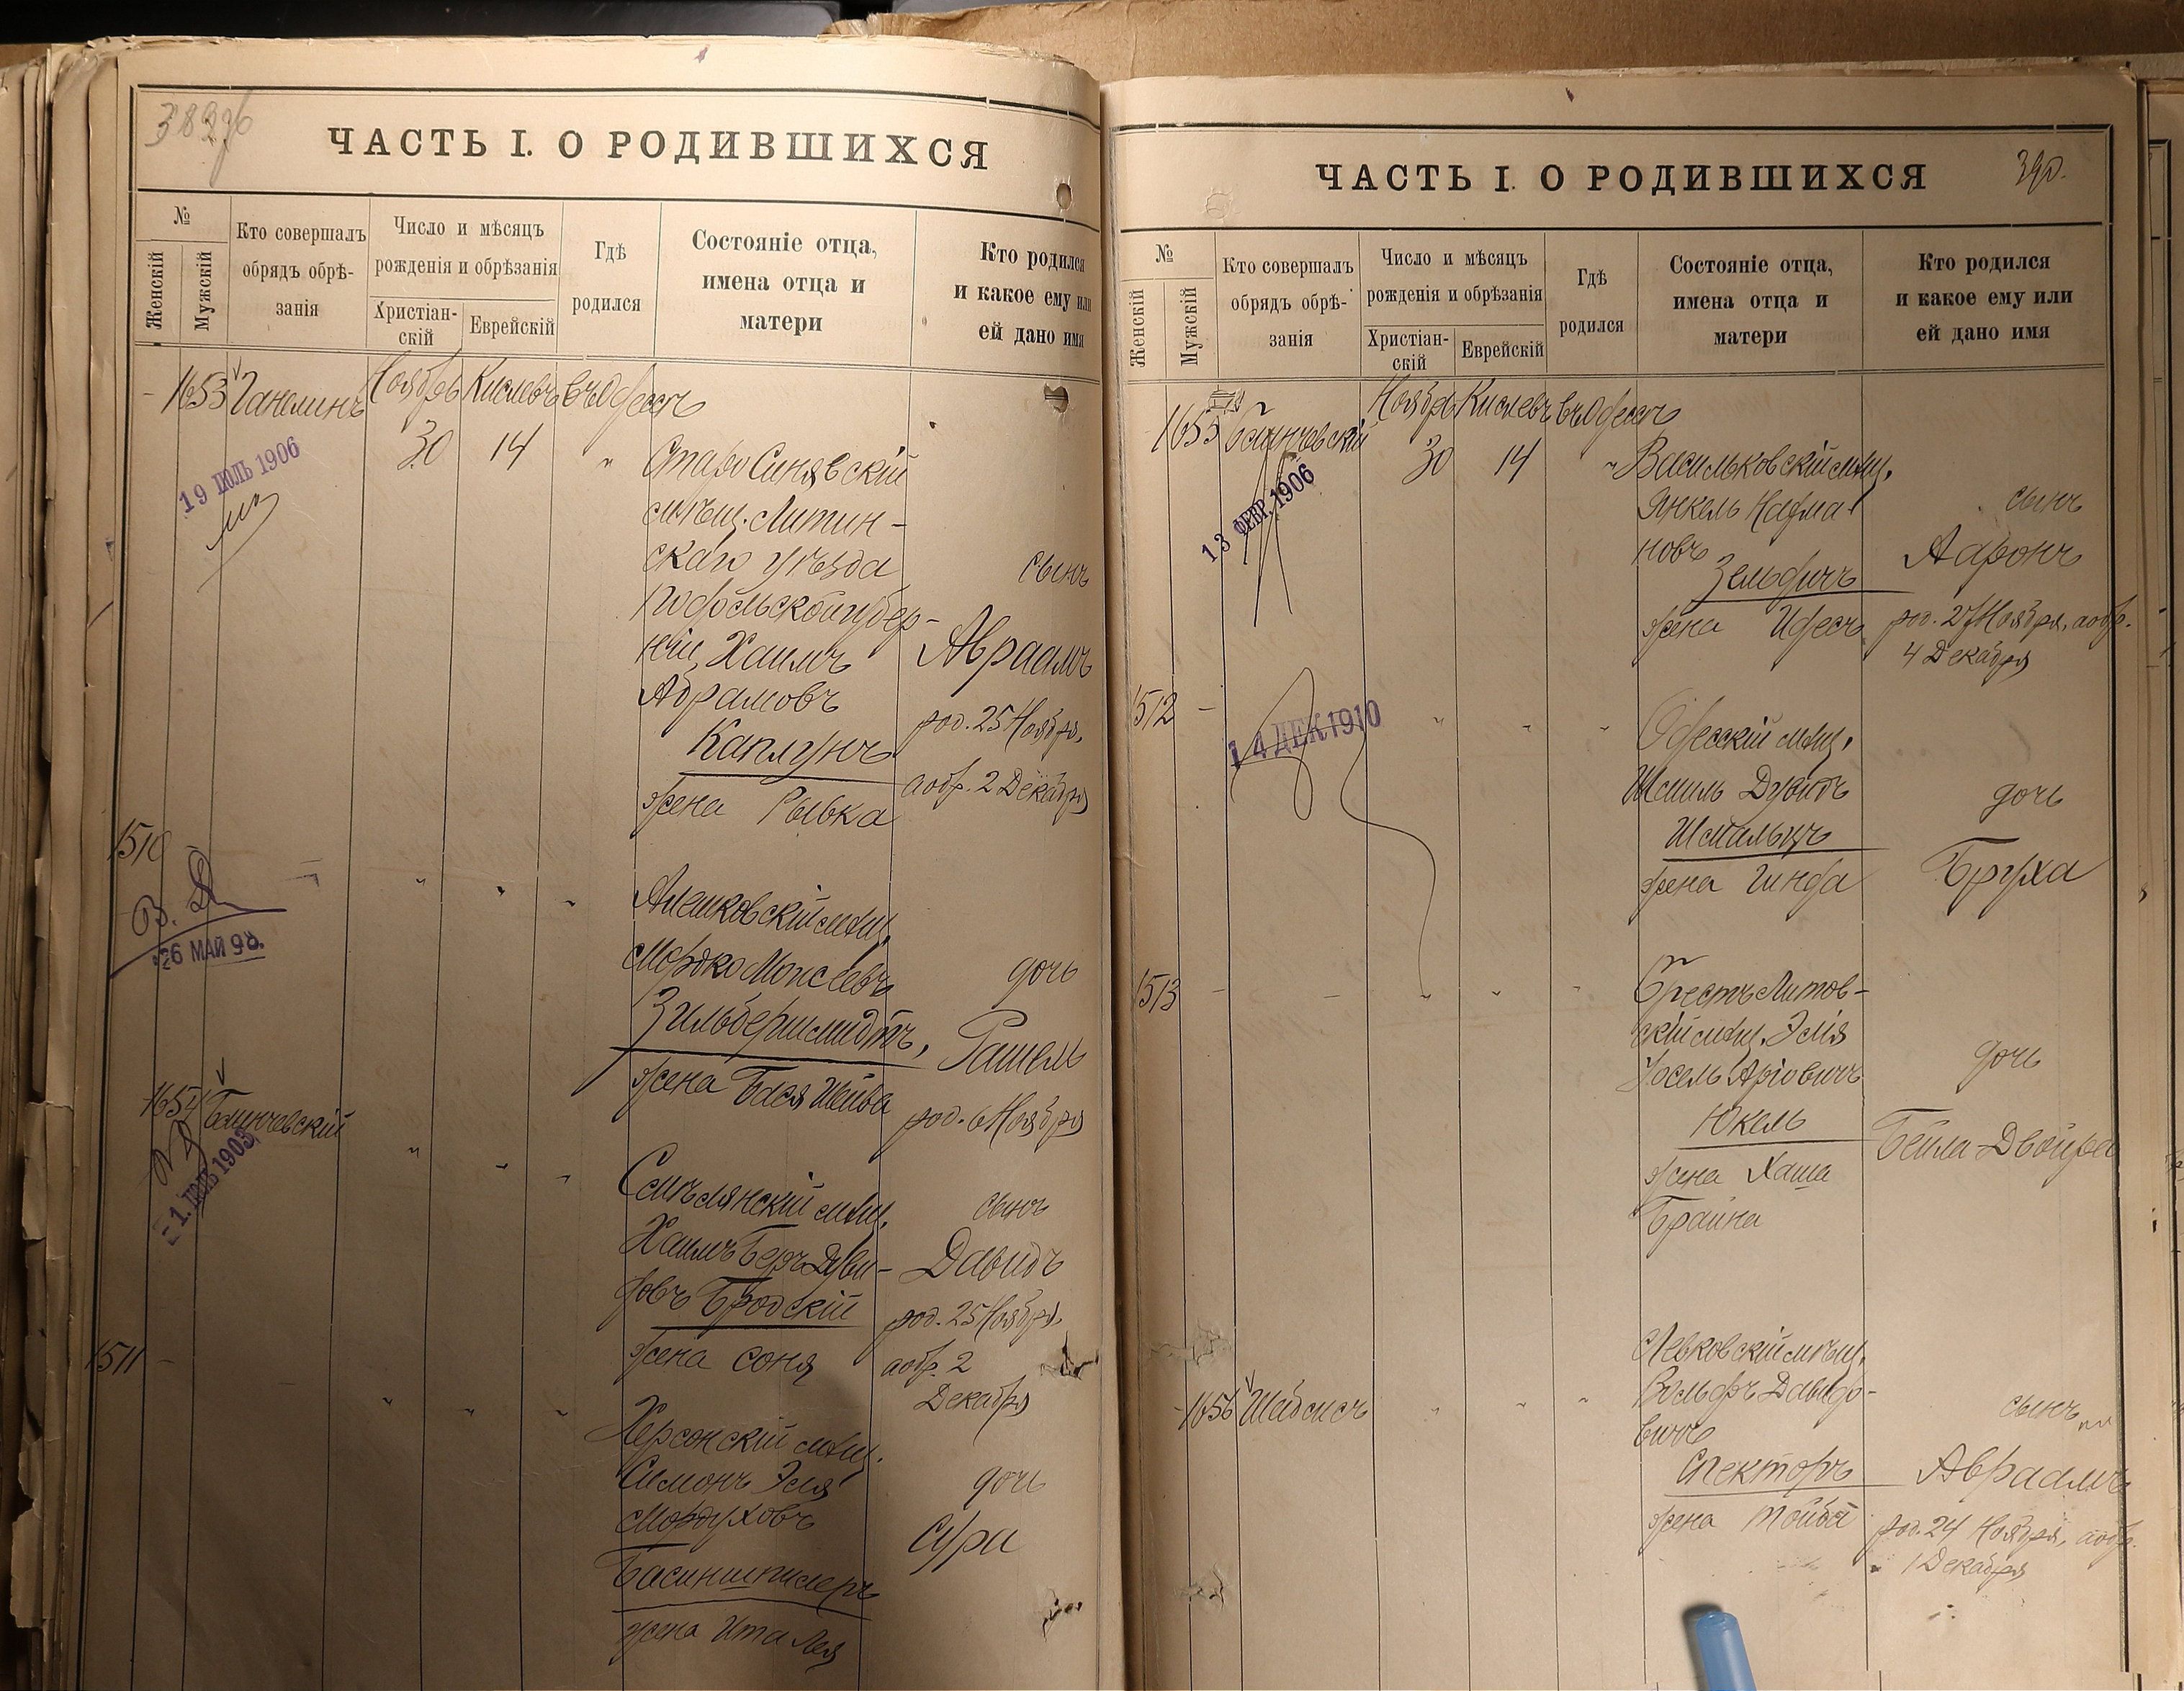 ЧАСТЬ I. О РОДИВШИХСЯ
№
Женскій
Мужскій
Кто совершалъ
обрядъ обрѣ-
занія
Число и мѣсяцъ
рожденія и обрѣзанія
Христіан-
скій
Еврейскій
Гдѣ
родился
Состояніе отца,
имена отца и
матери
Кто родился
и какое ему или
ей дано имя
1653 Ганелинъ Ноябрь Кислевъ въ Одессѣ
30 14 " Старо Синявскій
19 ІЮЛЬ 1906
мѣщ. Литин-
скаго уѣзда
Подольской губер-
ніи Хаимъ
Абрамовъ
Каплунъ
жена Рывка
сынъ
Авраамъ
род. 25 Ноября,
а обр. 2 Декабря
1510 - " " "
В. Д.
26 МАЙ 98.
Алешковскій мѣщ.
Мордко Моисеевъ
Зильбершмидтъ,
жена Бася Шейва
дочь
Рашель
род. 6 Ноября
1654 Блинчевскій " " "
-1. ІЮЛЬ 1903
Смѣлянскій мѣщ.
Хаимъ Беръ Дуви-
довъ Бродскій
жена Соня
сынъ
Давидъ
род. 25 Ноября,
а обр. 2
Декабря
1511 - " " "
Херсонскій мѣщ.
Симонъ Эля
Мордуховъ
Басиншпилеръ
жена Ита Лея
дочь
Сура
ЧАСТЬ I. О РОДИВШИХСЯ
390.
№
Женскій
Мужскій
Кто совершалъ
обрядъ обрѣ-
занія
Число и мѣсяцъ
рожденія и обрѣзанія
Христіан-
скій
Еврейскій
Гдѣ
родился
Состояніе отца,
имена отца и
матери
Кто родился
и какое ему или
ей дано имя
1655 Блинчевскій Ноябрь Кислевъ въ Одессѣ
30 14 " Васильковскій мѣщ.
13 ФЕВР. 1906
Янкель Нахма-
новъ
Зельдичъ
жена Идесъ
сынъ
Ааронъ
род. 27 Ноября, а обр.
4 Декабря
1512 - " " "
14 ДЕК 1910
Одесскій мѣщ.
Шмиль Дувидъ
Шмильцъ
жена Гинда
дочь
Бруха
1513 - - " " "
Брестъ Литов-
скій мѣщ. Эліа
Іосель Аріовичъ
Юкель
жена Хаша
Брайна
дочь
Бейла-Двойра
1656 Шабсисъ " " "
Левковскій мѣщ.
Вольфъ Давидо-
вичъ
Спекторъ
жена Тойба
сынъ
Авраамъ
род. 24 Ноября, а обр.
1 Декабря